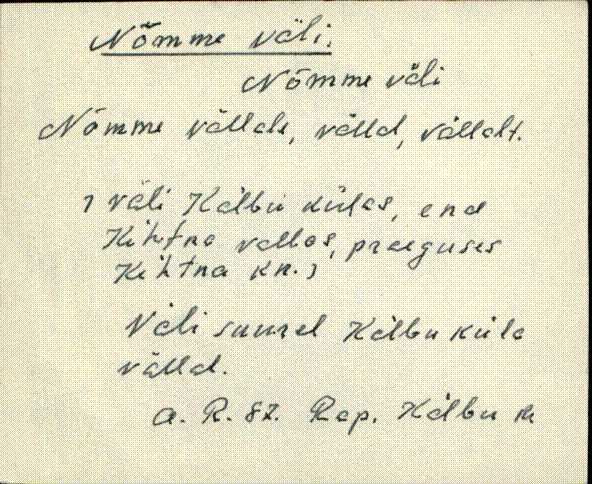 Nõmme väli.
Nõmme väli
Nõmme vällale, välla, vällalt.
väli Kälbu külas, end
Kihtna vallas, praeguses
Kihtna kn.
Väli suurel Kälbu küla
vällal.
A. R. 82. Rap. Kälbu k